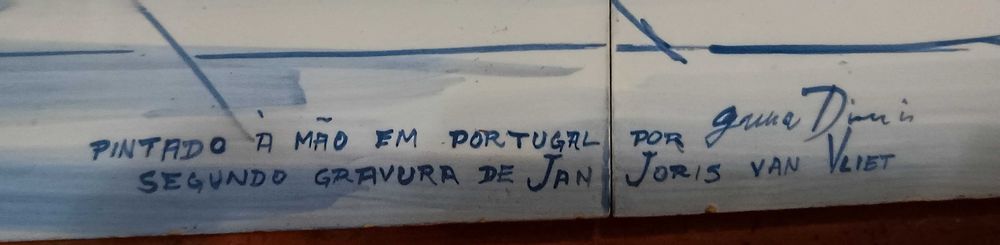 PINTADO À MÃO EM PORTUGAL POR
SEGUNDO GRAVURA DE JAN JORIS VAN VLIET